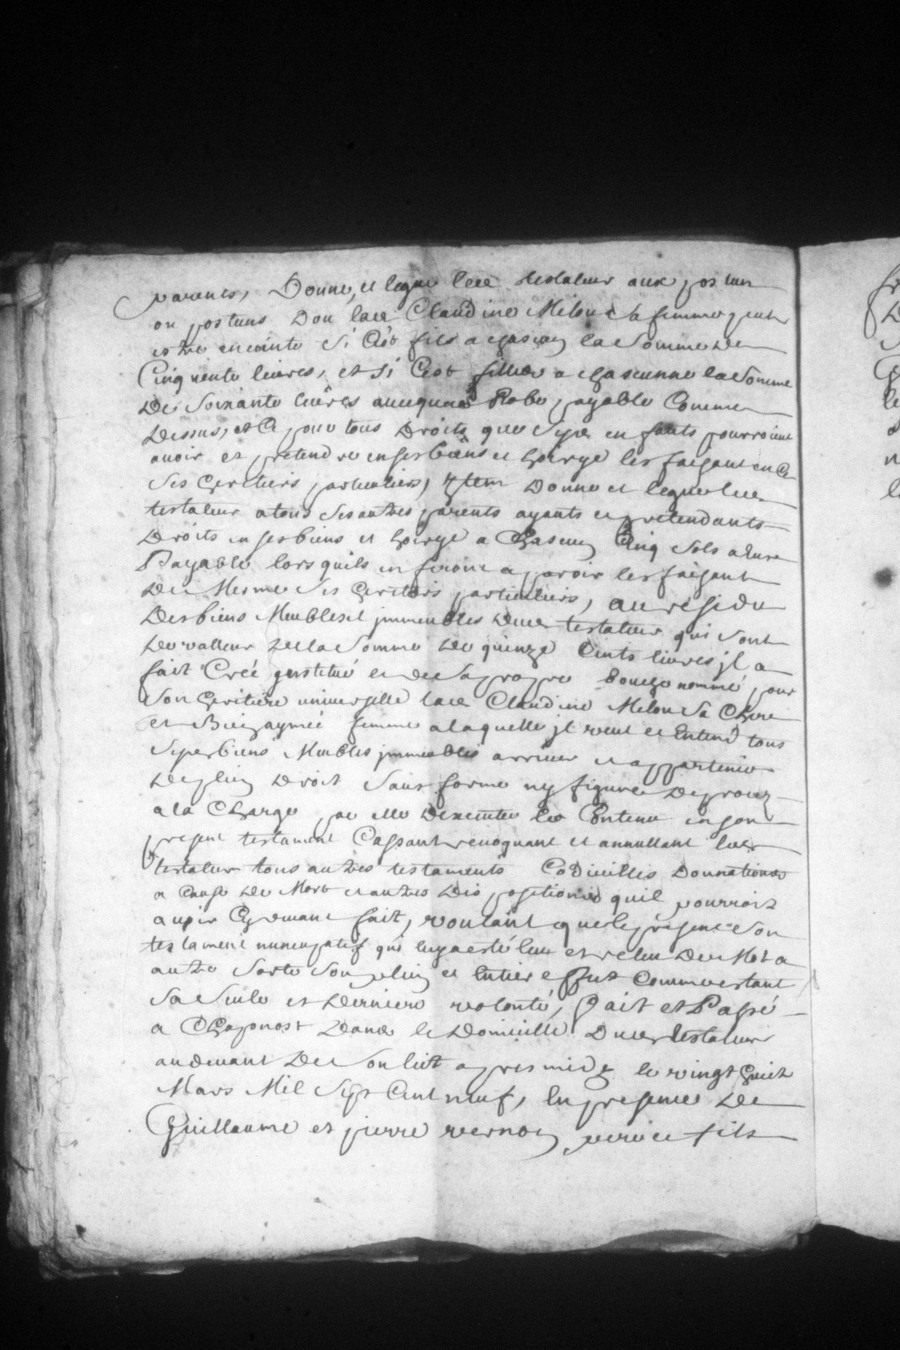 parents, Donne, et legue led testateur aux postum
ou postums Don lad Claudine Melon sa femme peut
estre enceinte si c'est fils a chascun la somme de
Cinquente livres, et si c'est filles a chascunne la somme
De soixante livres avecque Robe, payable Comme
Dessus, et ce pour tous Droits que sesd enfants pourroient
avoir et pretendre en ses biens et hoirye les faisant en ce
ses heritiers particuliers, Item Donne et legue led
testateur a tous ses autres parents ayants et pretendants
Droits en ses biens et hoirye a Chascun Cinq sols a eux
Payable lors quils en feront aparoir les faisant
De Mesme ses heritiers particuliers, au residu
Des biens Meubles et immeubles dud testateur qui sont
De valleur de la somme de quinze Cents livres il a
fait Creé institué et de sa propre bouche nommé pour
son heritiere universelle lad Claudine Melon sa Chere
et Bienaymée femme a laquelle il veut et Entend tous
sesd biens Meubles immeubles arriver et appartenir
De plein Droit sans forme ny figure De proces
a la Charge par elle Dexecuter le Contenu en son
present testament Cassant revoquant et annullant led
testateur tous autres testaments Codicilles Donnations
a Cause de Mort et autres Dispositions quil pourroit
avoir Cydevant fait, voulant que le present son
testament nuncupatif qui luy a esté leu et releu De Mot a
autre sorte son plein et Entier effect comme estant
sa seule et Derniere volonté, fait et Passé
a Chaponost Dans le Domicille Dud testateur
au devant De son lict apres midy le vingt huit
Mars Mil sept Cent neuf, En presence De
Guillaume et pierre vernay pere et fils